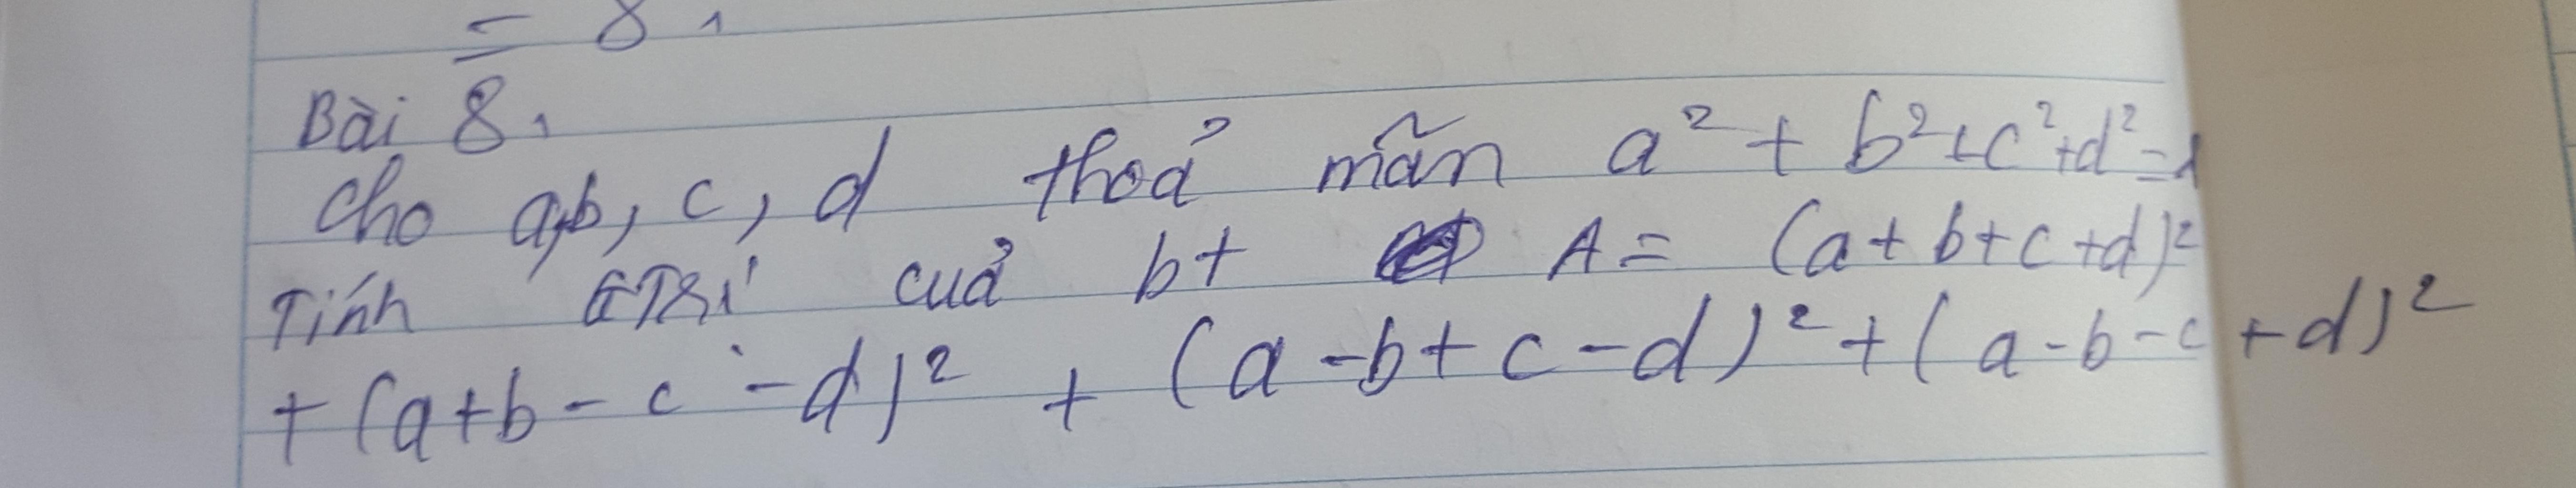 = 8.
Bài 8.
Cho a,b, c, d thoả mãn a² + b²+c²+d²=1
Tính GTRỊ cuả bt A= (a+b+c+d)²
+(a+b-c-d)² + (a-b+c-d)²+(a-b-c+d)²